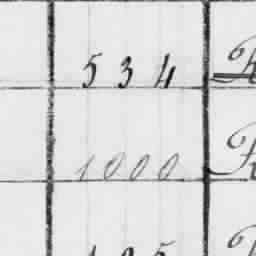 534
1000